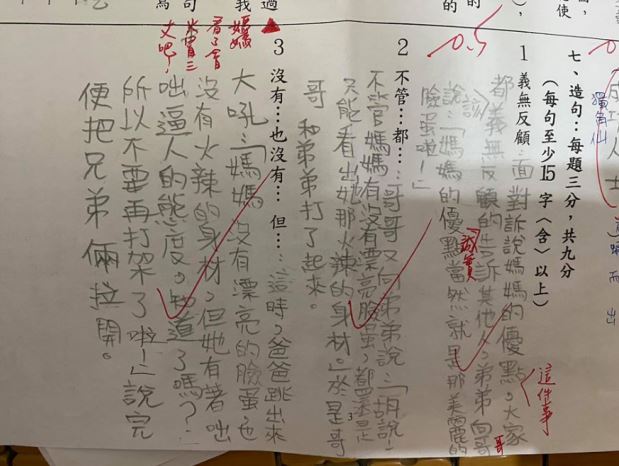 七、造句：每題三分，共九分
（每句至少15字〈含〉以上）
1 義無反顧：面對訴說媽媽的優點，大家
都義無反顧的告訴其他人，弟弟向哥
說：「媽媽的優點當然就是那美麗的
臉蛋啦！」
這件事
哥
該
誠實
-0.5
2 不管…都…：哥哥又向弟弟說：「胡說，
不管媽媽有沒有漂亮臉蛋，都還是
只能看出她那火辣的身材。」於是哥
哥和弟弟打了起來。
3 沒有…也沒有…但…：這時，爸爸跳出來
大吼：「媽媽沒有漂亮的臉蛋，也
沒有火辣的身材，但她有著咄
咄逼人的態度。知道了嗎？
所以不要再打架了啦！」說完
便把兄弟倆拉開。
媽媽
看了會
文吧！
獨角仙
而出
3